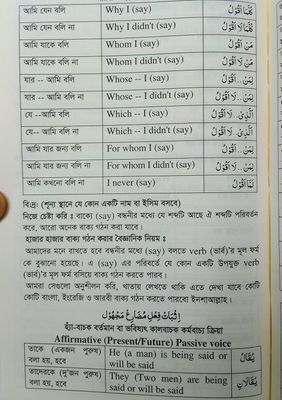 আমি যেন বলি Why I (say) كَمَا اَقُوْلُ
আমি যেন বলি না Why I didn't (say) كَمَا لَا اَقُوْلُ
আমি যাকে বলি Whom I (say) مَنْ اَقُوْلُ
আমি যাকে বলি না Whom I didn't (say) مَنْ لَا اَقُوْلُ
যার -- আমি বলি Whose -- I (say) لِمَنْ... اَقُوْلُ
যার -- আমি বলি না Whose -- I didn't (say) لِمَنْ... لَا اَقُوْلُ
যে -- আমি বলি Which -- I (say) اَلَّذِيْ... اَقُوْلُ
যে-- আমি বলি না Which -- I didn't (say) اَلَّذِيْ... لَا اَقُوْلُ
আমি যার জন্য বলি For whom I (say) لِمَنْ اَقُوْلُ
আমি যার জন্য বলি না For whom I didn't (say) لِمَنْ لَا اَقُوْلُ
আমি কখনো বলি না I never (say) اَقُوْلُ
বি:দ্র: (শূন্য স্থানে যে কোন একটি নাম বা ইসিম বসবে)
নিজে চেষ্টা করি : বাক্যে (say) বন্ধনীর মধ্যে যে শব্দটি আছে ঐ শব্দটি পরিবর্তন
করে, আরো অনেক বাক্য গঠন করা যাবে।
হাজার হাজার বাক্য গঠন করার বৈজ্ঞানিক নিয়ম :
আমাদের মনে রাখতে হবে বন্ধনীর মধ্যে (say) বলতে verb (ভার্ব)'র মূল ফর্ম
কে বুঝানো হয়েছে। এ (say) এর পরিবর্তে যে কোন একটি উপযুক্ত verb
(ভার্ব)'র মূল ফর্ম বসিয়ে বাক্য গঠন করতে পারব।
আমরা সেগুলো অনুশীলন করি, খাতায় লেখতে থাকি এতে দেখা যাবে কোটি
কোটি বাংলা, ইংরেজি ও আরবী বাক্য গঠন করতে পারবো ইনশাআল্লাহ।
اِثْبَاتْ فِعْلْ مُضَارِعْ مَجْهُوْل
হ্যাঁ-বাচক বর্তমান বা ভবিষ্যৎ কালবাচক কর্মবাচ্য ক্রিয়া
Affirmative (Present/Future) Passive voice
তাকে (একজন পুরুষ) He (a man) is being said or يُقَالُ
বলা হয়, হবে will be said
তাদেরকে (দু'জন পুরুষ) They (Two men) are being يُقَالَانِ
বলা হয়, হবে said or will be said